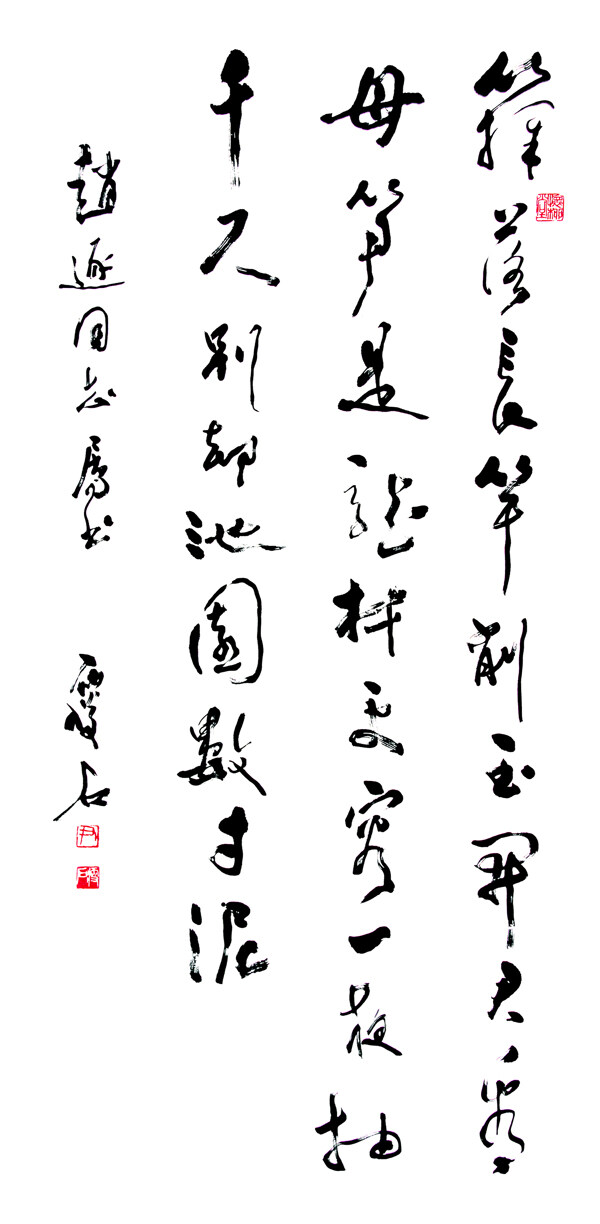 籜落長竿削玉開君看
母笋是龍材更容一夜抽
千尺别却池園數寸泥
趙遜同志屬書 瘦石
尹
瘦石